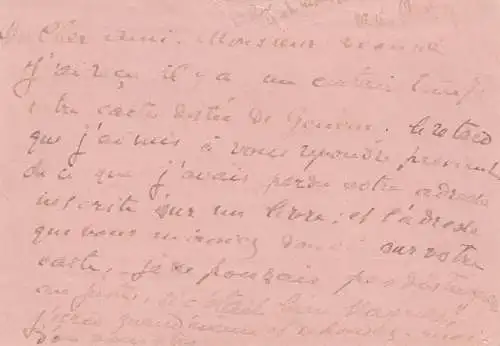 Mon cher ami. Monsieur
j'ai reçu il y a un certain temps
votre carte datée de Genève. Le retard
que j'ai mis à vous répondre, provient
de ce que j'avais perdu votre adresse
inscrite sur un livre; et l'adresse
que vous m'aviez donné sur votre
carte, je ne pouvais pas distinguer
au juste, si c'était bien
j'écris quand même et